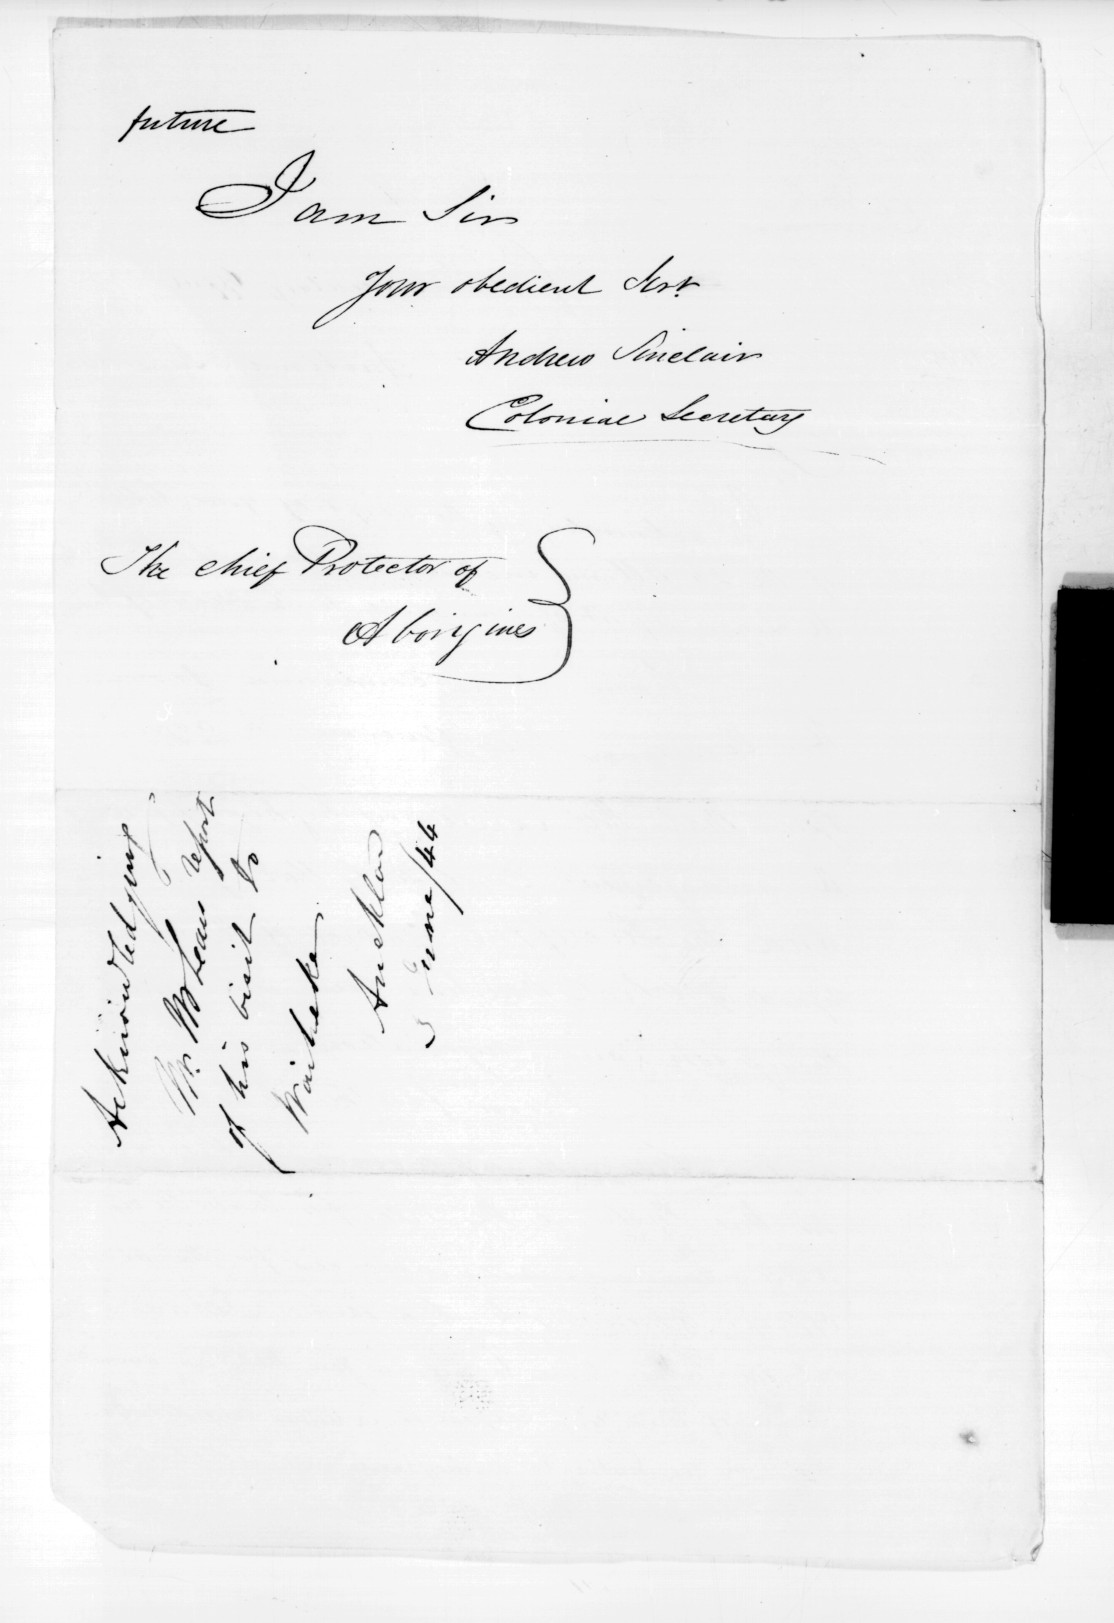 future
I am Sir
Your obedient Servt
Andrew Sinclair
Colonial Secretary
The Chief Protector of
Aborigines
Acknowledging
Mr. McLeans report
of his visit to
Waiheke
Aucklan
3 June/44